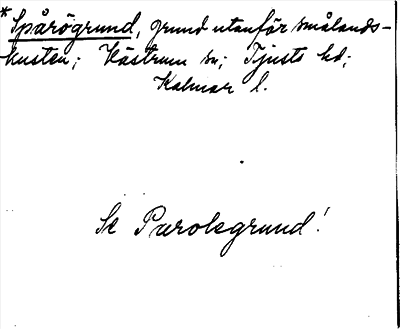 * Spårögrund, grund utanför smålands-
kusten; Västrum sn; Tjusts hd;
Kalmar l.
Se Parolsgrund!